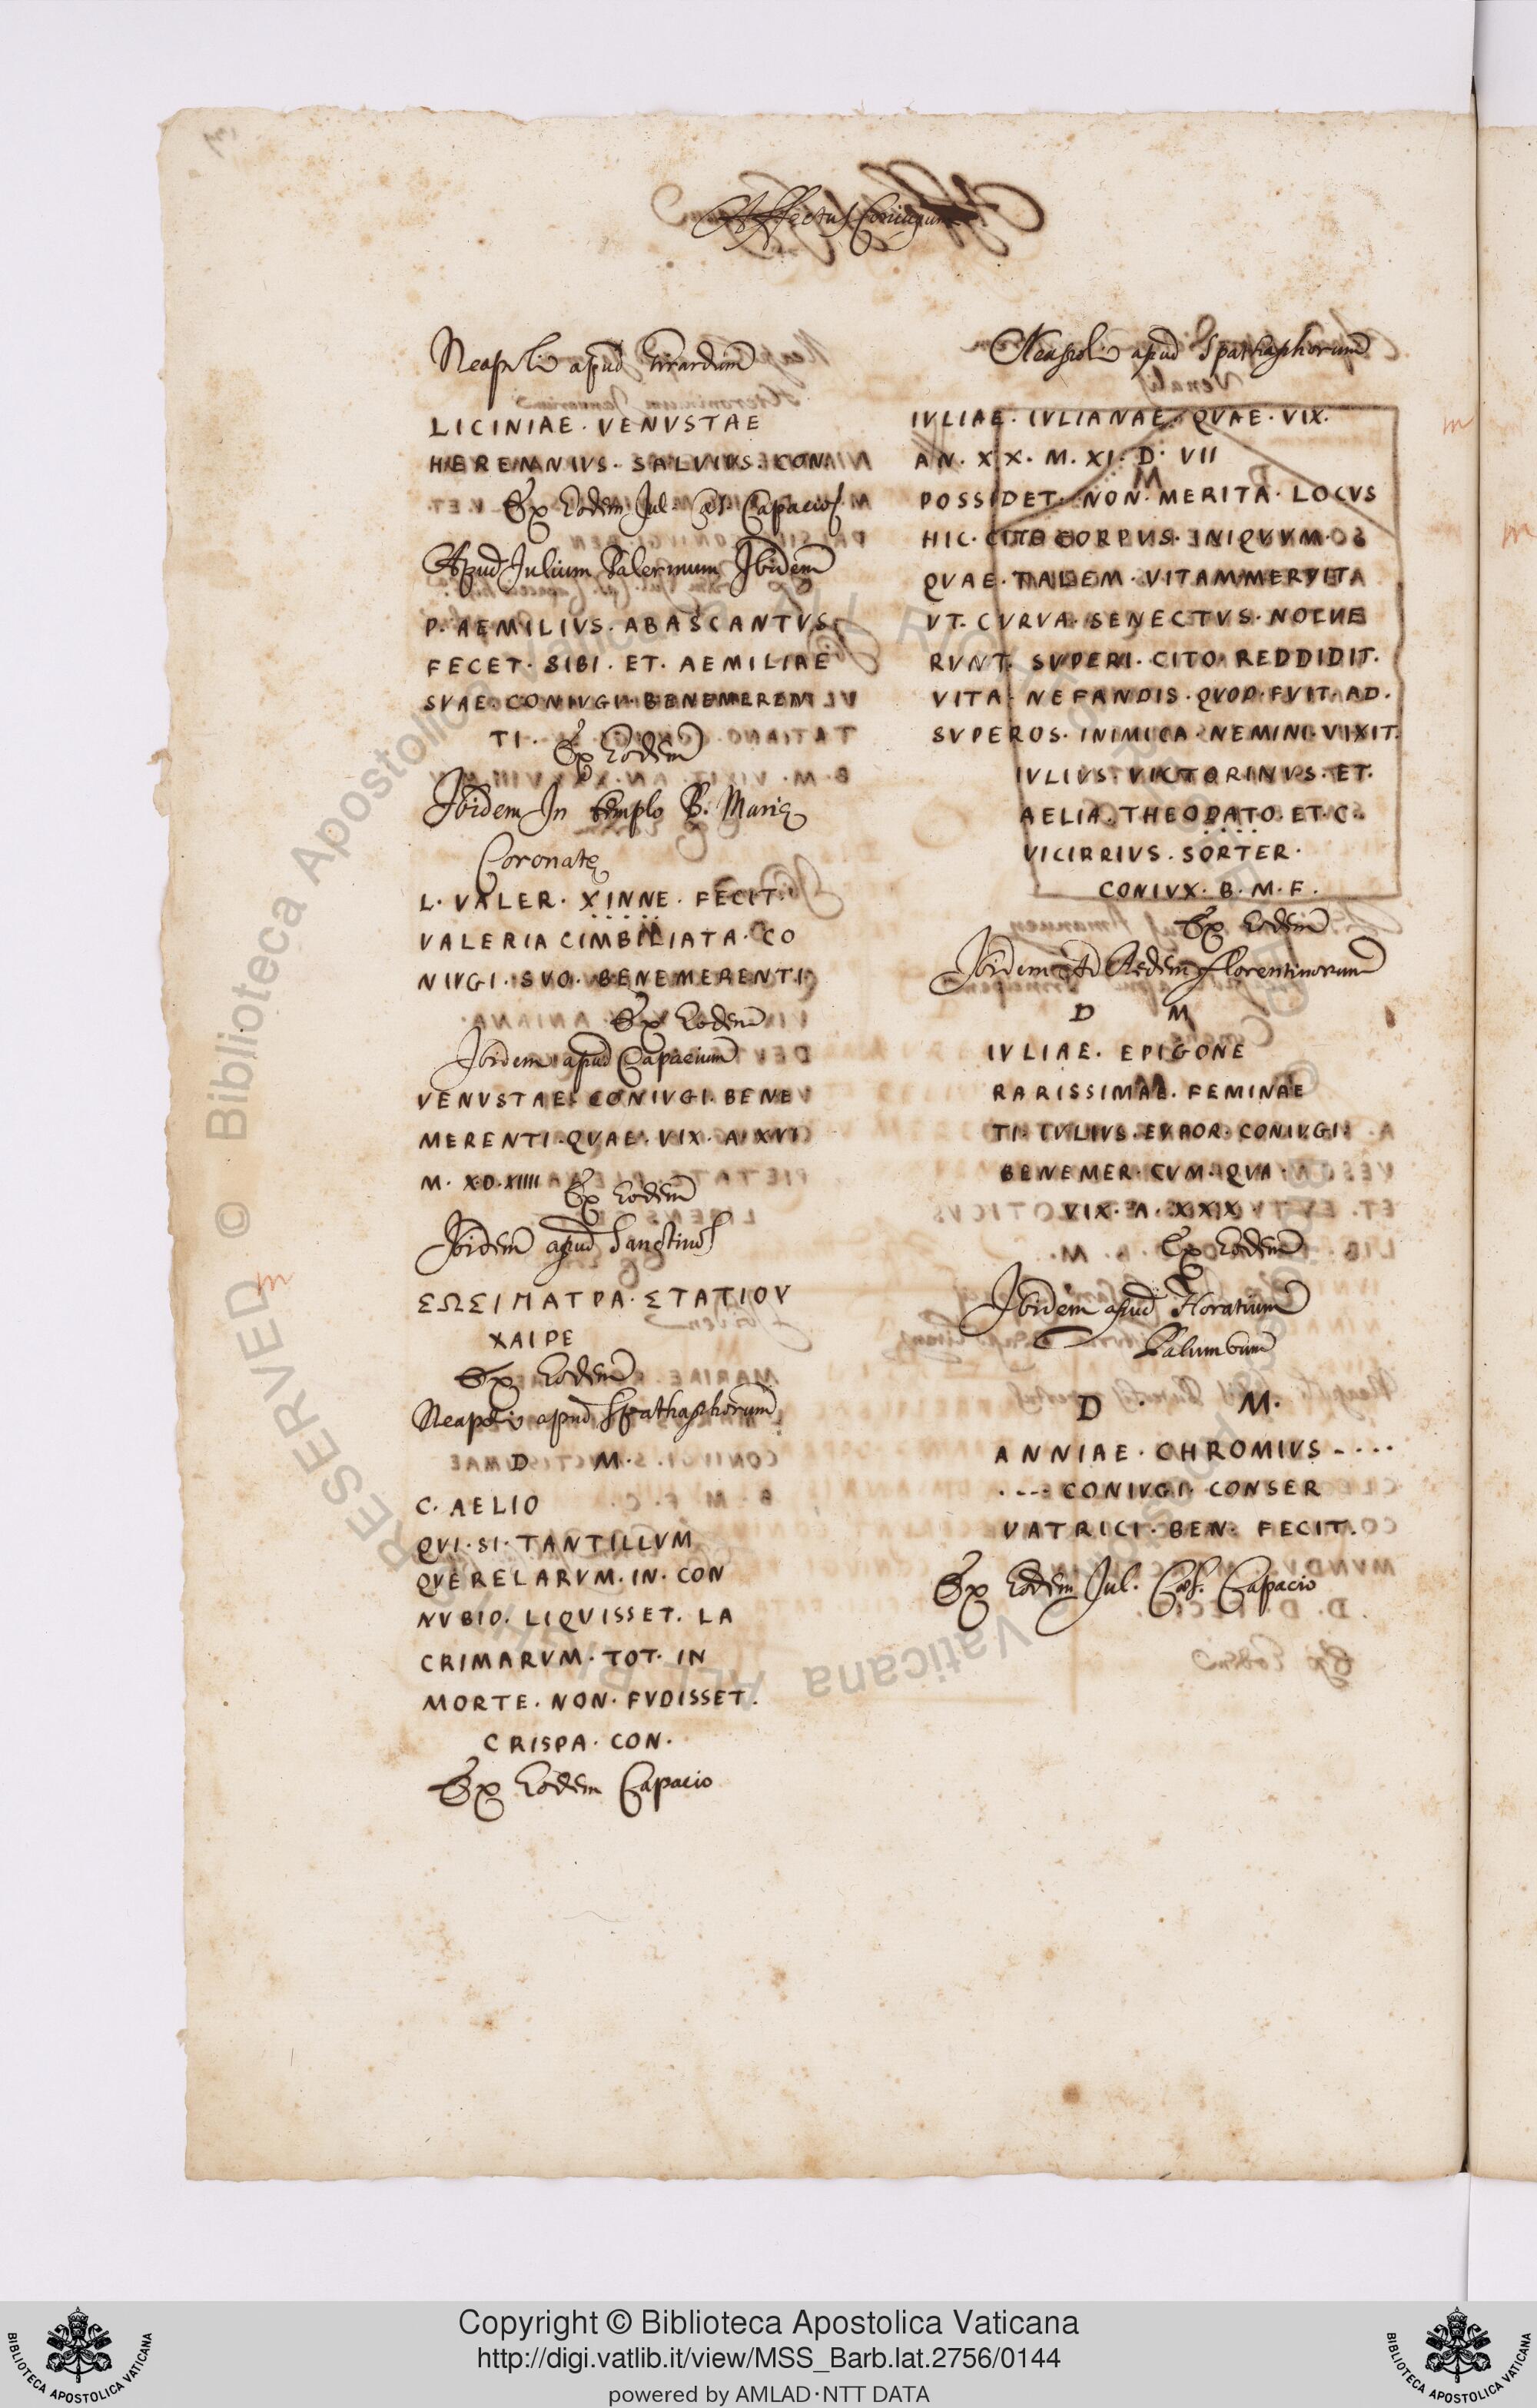 Affectus Coniugum
Neapoli apud Girardum
LICINIAE · VENVSTAE
HERENNIVS · SALVIVS · CON
Ex Eodem Jul. Cæs. Capacio
Apud Julium Palermum Ibidem
P. AEMILIVS · ABASCANTVS
FECET · SIBI · ET · AEMILIAE
SVAE · CONIVGI · BENEMEREN
TI ·
Ex Eodem
Ibidem In templo B. Marię
Coronatę
L · VALER · XINNE · FECIT ·
VALERIA CIMBILIATA · CO
NIVGI · SVO · BENEMERENTI
Ex Eodem
Ibidem apud Capacium
VENVSTAE · CONIVGI · BENE
MERENTI · QVAE · VIX · A · XVI
M · X · D · XIIII
Ex Eodem
Ibidem apud
ΣΩΣΙΠΑΤΡΑ · ΣΤΑΤΙΟΥ
ΧΑΙΡΕ
Ex Eodem
Neapoli apud Spathaphorum
D M ·
C · AELIO
QVI · SI · TANTILLVM
QVERELARVM · IN · CON
NVBIO · LIQVISSET · LA
CRIMARVM · TOT · IN
MORTE · NON · FVDISSET ·
CRISPA · CON ·
Ex Eodem Capacio
Neapoli apud Spathaphorum
IVLIAE · IVLIANAE · QVAE · VIX ·
AN · XX · M · XI · D · VII
POSSIDET · NON · MERITA · LOCVS
HIC · CITO CORPVS · INIQVVM ·
QVAE · TALEM · VITAM MERVIT
VT · CVRVA · SENECTVS · NOLVE
RVNT · SVPERI · CITO · REDDIDIT ·
VITA · NEFANDIS · QVOD · FVIT · AD ·
SVPEROS · INIMICA · NEMINI · VIXIT ·
IVLIVS · VICTORINVS · ET ·
AELIA · THEODATO · ET · C ·
VICIRRIVS · SORTER ·
CONIVX · B · M · F ·
Ex Eodem
Ibidem Ad Aedem Florentinorum
D M
IVLIAE · EPIGONE
RARISSIMAE · FEMINAE
TI · IVLIVS · EVAOR · CONIVGI ·
BENEMER · CVM · QVA ·
VIX · A · XXX
Ex Eodem
Ibidem apud Horatium
Palumbum
D · M ·
ANNIAE · CHROMIVS - · · ·
· - - - CONIVGI · CONSER
VATRICI · BEN · FECIT ·
Ex Eodem Jul. Cæs. Capacio
Copyright © Biblioteca Apostolica Vaticana
http://digi.vatlib.it/view/MSS_Barb.lat.2756/0144
powered by AMLAD·NTT DATA
BIBLIOTECA APOSTOLICA VATICANA
BIBLIOTECA APOSTOLICA VATICANA